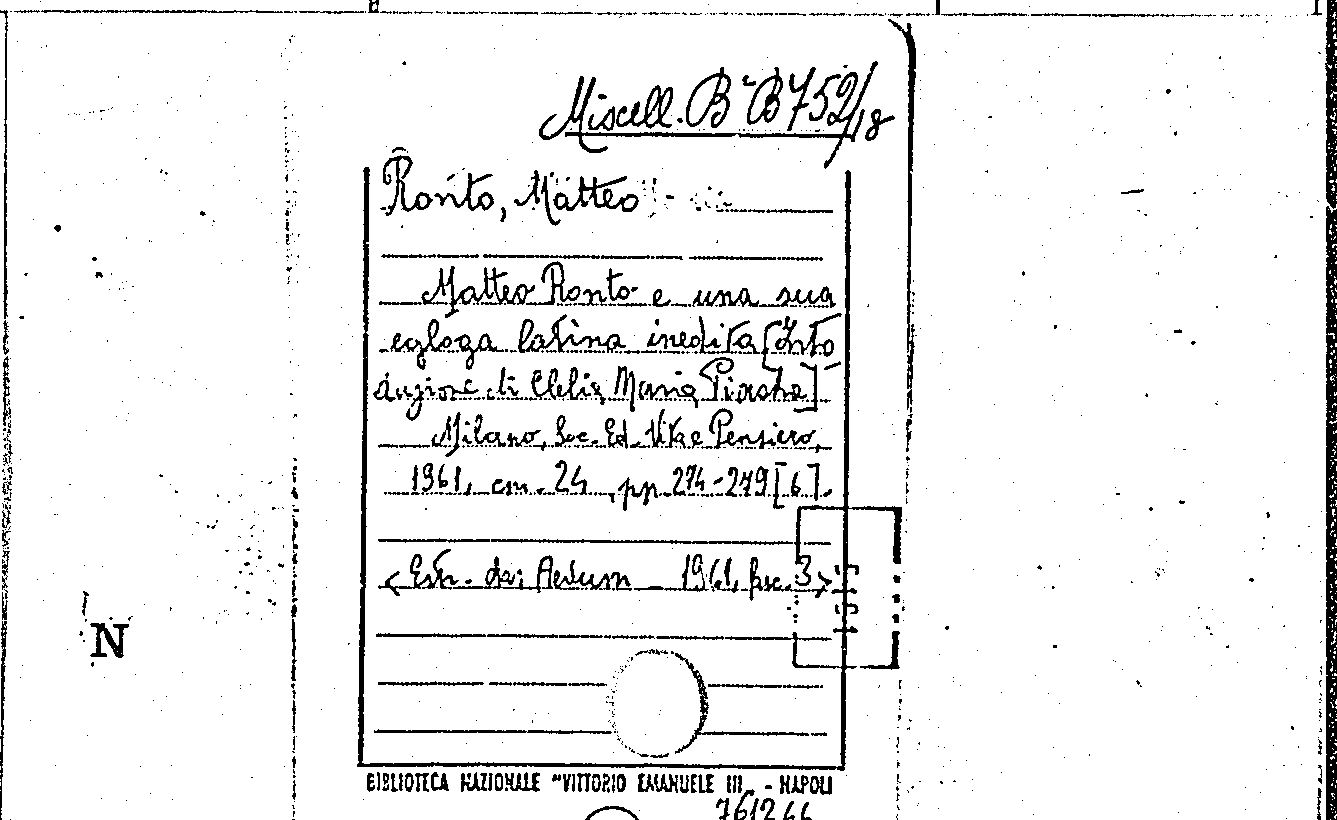 Miscell. B B 752/18
Ronto, Matteo
Matteo Ronto e una sua
egloga latina inedita [Intro
duzione di Clelia Maria Piastra]
Milano, Soc. Ed. Vita e Pensiero,
1961, cm. 24, pp. 274-279 [6].
<Estr. da: Aevum _ 1961, fasc. 3>
N
BIBLIOTECA NAZIONALE "VITTORIO EMANUELE III" - NAPOLI
761266